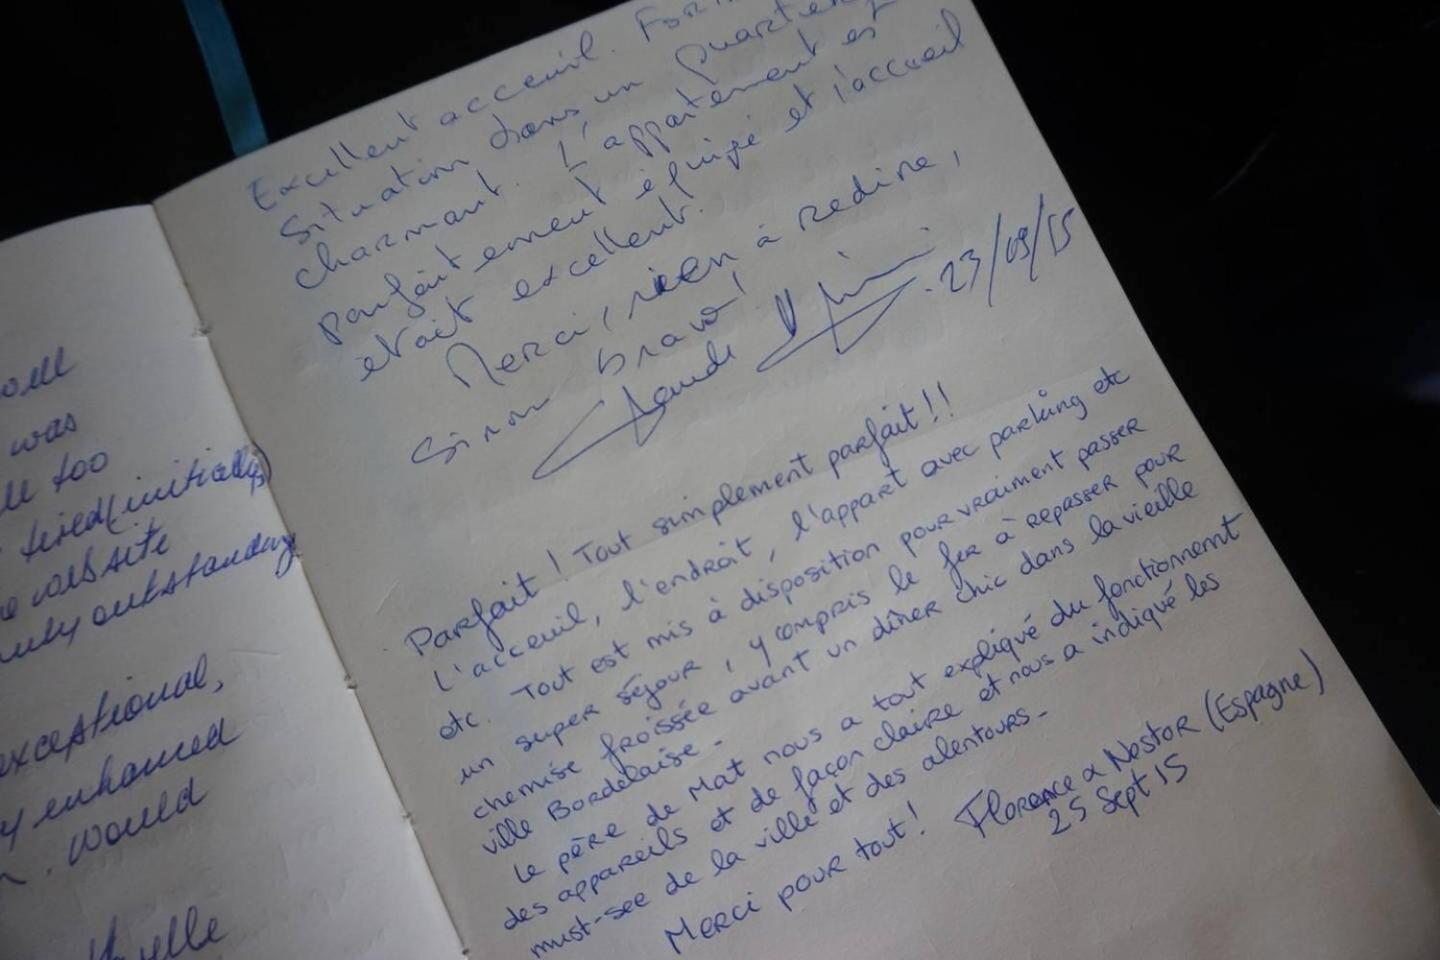 oell
was
ell too
tired (initially)
website
outstanding
exceptional,
enhanced
. would
elle
Excellent acceuil.
Situation dans un quartier
charmant. L'appartement es
parfaitement équipé et l'accueil
etait excellent.
Merci, rien à redire,
Sinon bravo!
Claude 23/09/15
Parfait! Tout simplement parfait!!
L'acceuil, l'endroit, l'appart avec parking etc
etc. Tout est mis à disposition pour vraiment passer
un super séjour, y compris le fer à repasser pour
chemise froissée avant un dîner chic dans la vieille
ville Bordelaise-
Le père de Mat nous a tout expliqué du fonctionnemt
des appareils et de façon claire et nous a indiqué les
must-see de la ville et des alentours-
Merci pour tout! Florence & Nostor (Espagne)
25 Sept 15